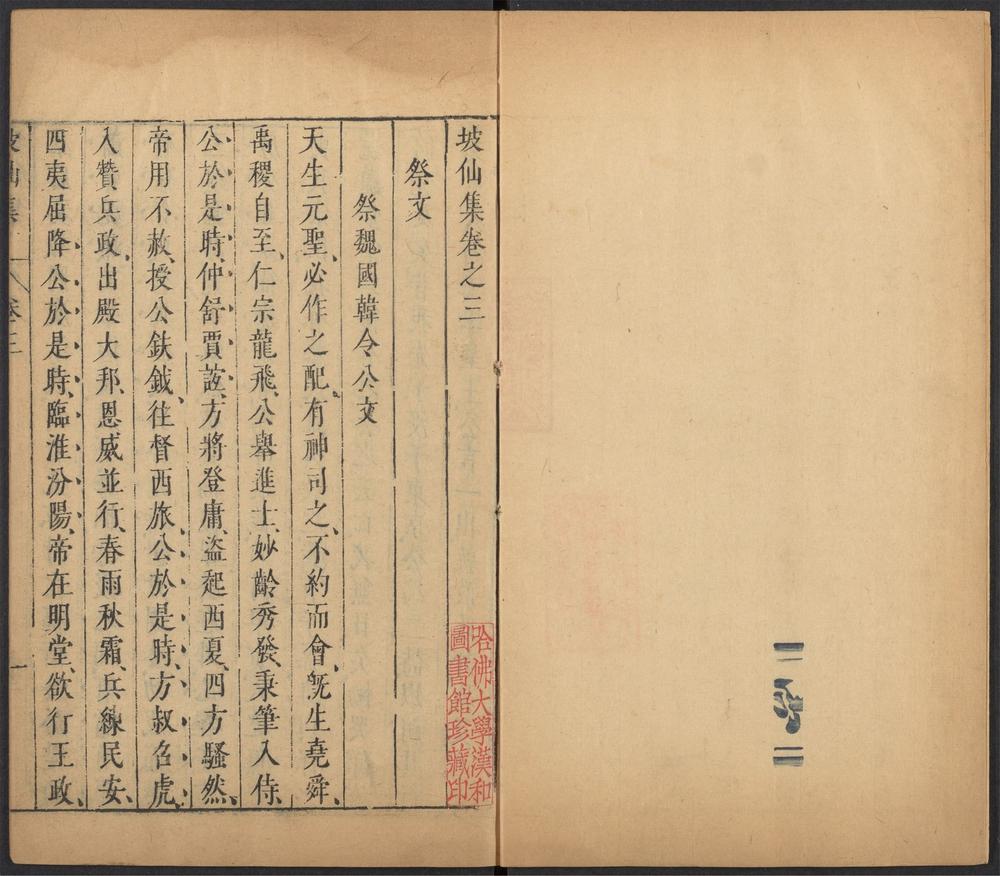 坡仙集卷之三
祭文
祭魏國韓令公文
天生元聖、必作之配、有神司之、不約而會、旣生堯舜、
禹稷自至、仁宗龍飛、公舉進士、妙齡秀發、秉筆入侍、
公於是時、仲舒賈誼、方將登庸、盜起西夏、四方騷然、
帝用不赦、授公鈇鉞、往督西旅、公於是時、方叔召虎、
入贊兵政、出殿大邦、恩威並行、春雨秋霜、兵練民安、
四夷屈降、公於是時、臨淮汾陽、帝在明堂、欲行王政、
坡仙集
卷三
一
哈佛大學漢和
圖書館珍藏印